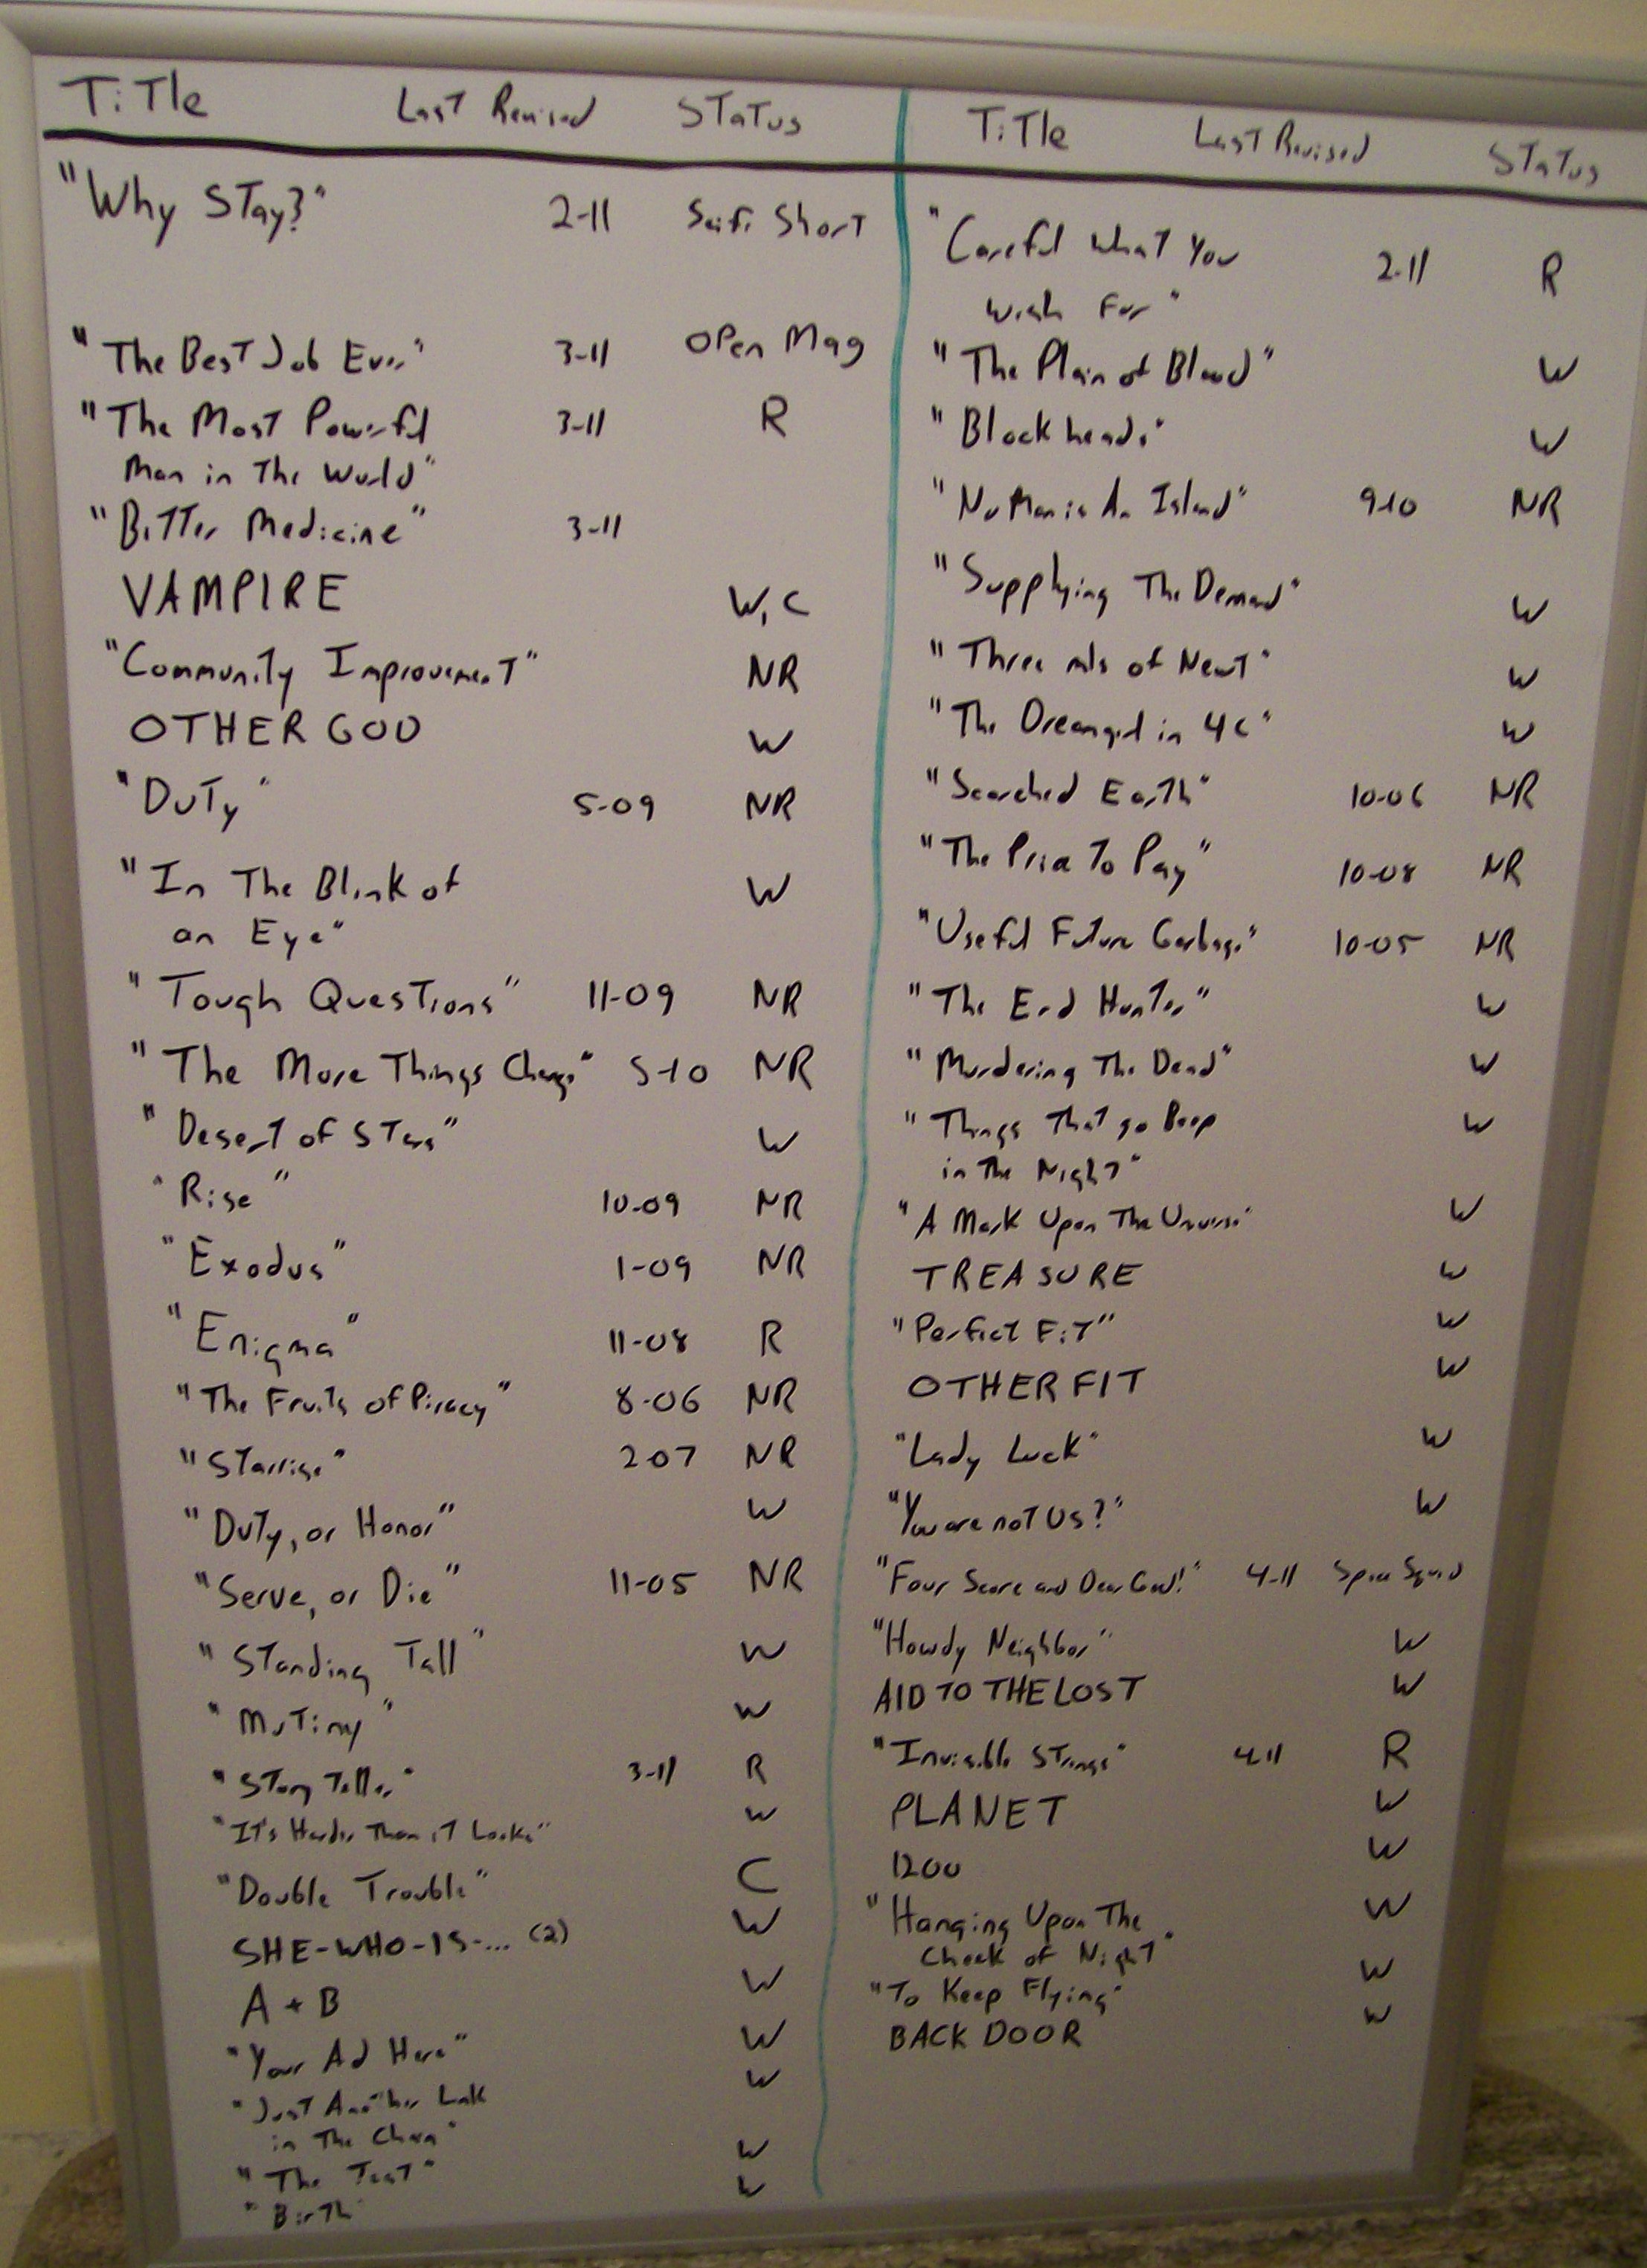 Title Last Revised Status
"Why Stay?" 2-11 Scifi Short
"The Best Job Ever" 3-11 Open Mag
"The Most Powerful 3-11 R
Man in The World"
"Bitter Medicine" 3-11
VAMPIRE W, C
"Community Improvement" NR
OTHER GOD W
"Duty" 5-09 NR
"In The Blink of W
an Eye"
"Tough Questions" 11-09 NR
"The More Things Change" 5-10 NR
"Desert of Stars" W
"Rise" 10-09 NR
"Exodus" 1-09 NR
"Enigma" 11-08 R
"The Fruits of Piracy" 8-06 NR
"Starrise" 2-07 NR
"Duty, or Honor" W
"Serve, or Die" 11-05 NR
"Standing Tall" W
"Mutiny" W
"Story Teller" 3-11 R
"It's Harder Than it Looks" W
"Double Trouble" C
SHE-WHO-IS-... (2) W
A + B W
"Your Ad Here" W
"Just Another Link W
in The Chain"
"The Test" W
"Birth" W
Title Last Revised Status
"Careful What You 2-11 R
Wish For"
"The Plain of Blood" W
"Blockheads" W
"No Man is An Island" 9-10 NR
"Supplying The Demand" W
"Three mls of Newt" W
"The Dreamgirl in 4C" W
"Scorched Earth" 10-06 NR
"The Price To Pay" 10-08 NR
"Useful Future Garbage" 10-05 NR
"The End Hunter" W
"Murdering The Dead" W
"Things That go Beep W
in The Night"
"A Mark Upon The Universe" W
TREASURE W
"Perfect Fit" W
OTHER FIT W
"Lady Luck" W
"You are not Us?" W
"Four Score and Dear God!" 4-11 Space Squid
"Howdy Neighbor" W
AID TO THE LOST W
"Invisible Strings" 4-11 R
PLANET W
1200 W
"Hanging Upon The W
Cheek of Night"
"To Keep Flying" W
BACK DOOR W